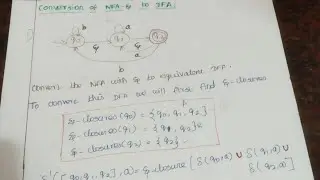 Conversion of NFA-ξ to DFA
b
a
q0
q1
q2
ξ
ξ
a
b
Convert the NFA with ξ to equivalent DFA.
To convert this DFA we will first find ξ-closures
ξ-closures(q0) = {q0, q1, q2}
ξ-closures(q1) = {q1, q2}
ξ-closures(q2) = {q2}
δ'({q0, q1, q2}, a) = ξ-closure { δ(q0,a) ∪ δ(q1,a) ∪
δ(q2,a)